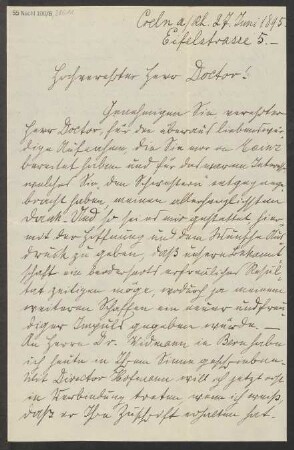 Coeln a/Rh. 27 Juni 1895
Eifelstrasse 5.—
Hochverehrter Herr Doctor!
Genehmigen Sie verehrter
Herr Doctor, für die überaus liebenswür-
dige Aufnahme die Sie mir in
bereitet haben und für das warme Interesse
welches Sie den Schwestern entgegenge-
bracht haben, meinen allerherzlichsten
Dank. Und so sei es mir gestattet hier-
mit der Hoffnung und dem Wunsche Aus-
druck zu geben, daß unsere Bekannt-
schaft ein beiderseits erfreuliches Resul-
tat zeitigen möge, wodurch zu meinem
weiteren Schaffen ein neuer und freu-
diger Impuls gegeben würde.—
An Herrn Dr. Widmann in Bern habe
ich heute in Ihrem Sinne geschrieben.
Mit Director Hofmann will ich jetzt erst
in Verbindung treten wenn ich weiß,
daß er Ihre Zuschrift erhalten hat.